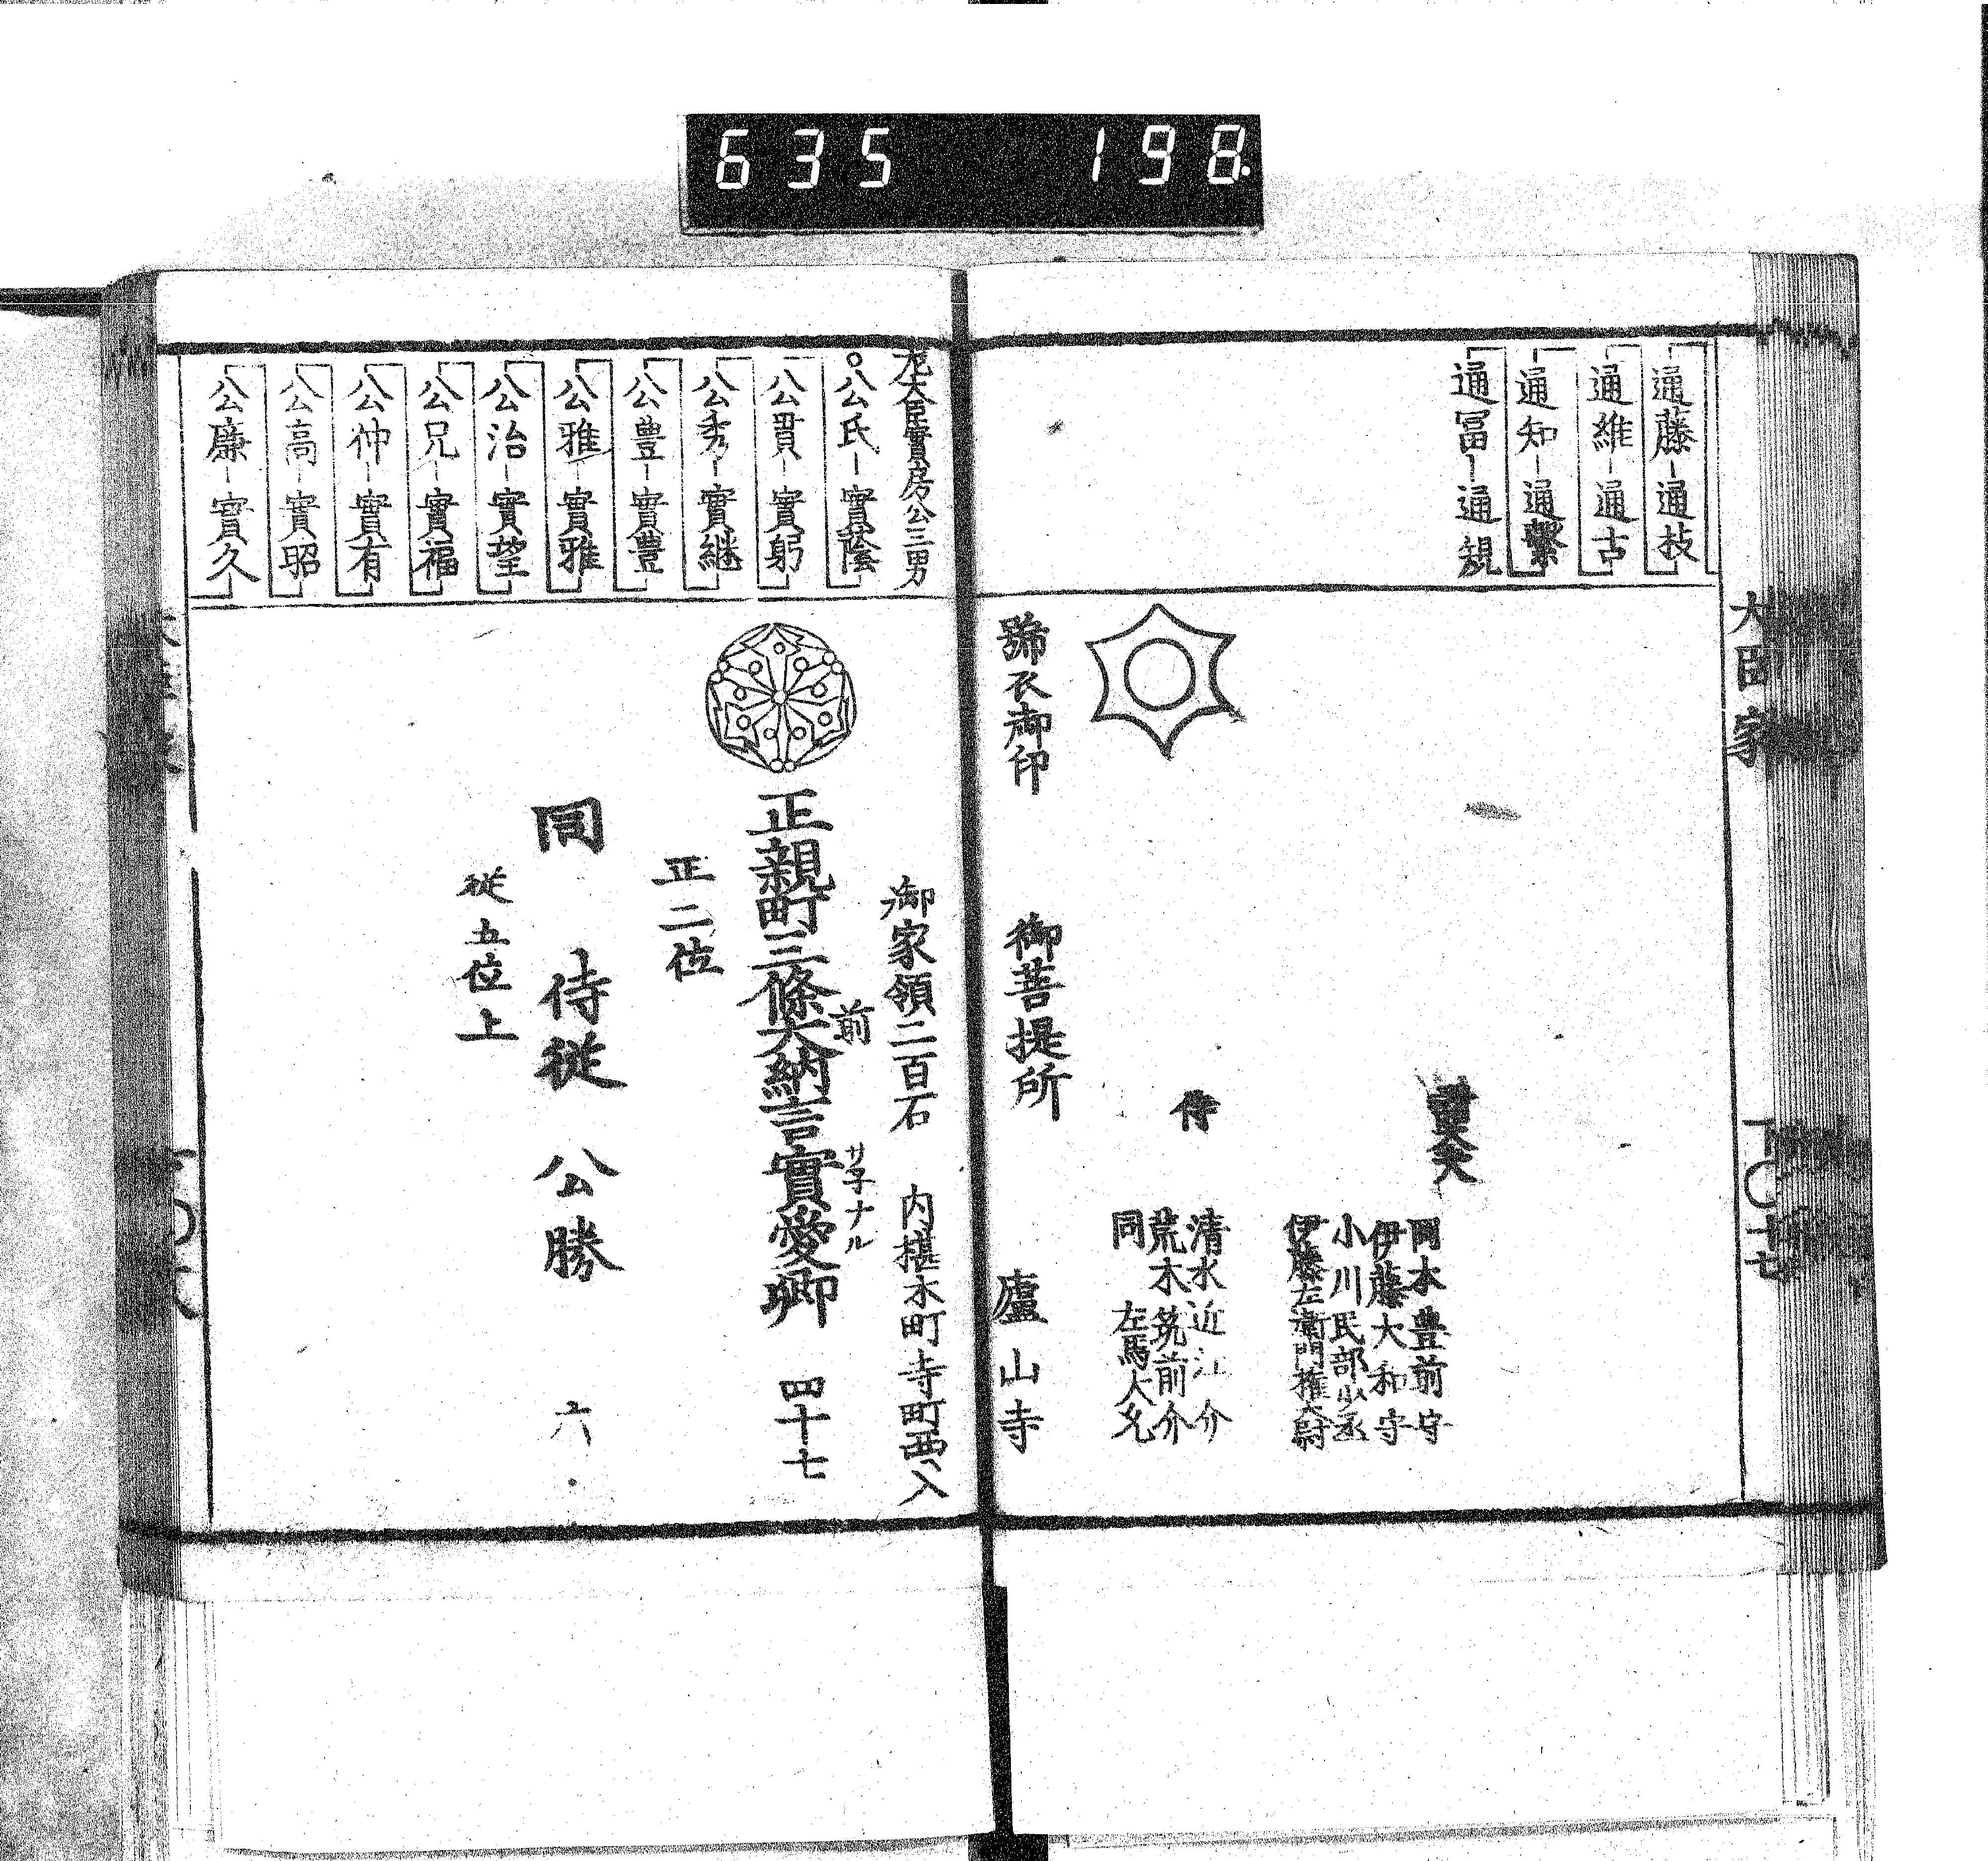 635 198
通藤―通枝
通維―通古
通知―通繁
通冨―通規
諸大夫
岡本豊前守
伊藤大和守
小川民部少丞
伊藤左衛門権大尉
侍
清水近江介
荒木筑前介
同 左馬大允
御菩提所 廬山寺
下〇十七
左大臣實房公三男
公氏―實蔭
公貫―實躬
公秀―實継
公豊―實豊
公雅―實雅
公治―實望
公兄―實福
公仲―實有
公高―實昭
公廉―實久
御家領二百石 内椹木町寺町西ヘ入
正親町三條前大納言實愛卿 四十七
サ子ナル
正二位
同 侍従 公勝 六
従五位上